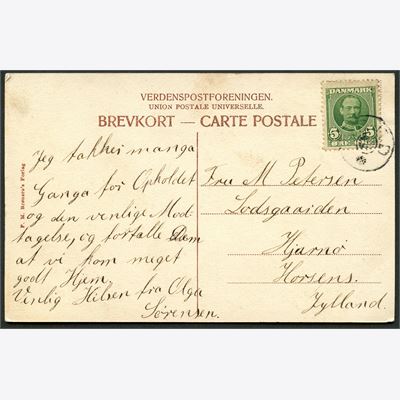 VERDENSPOSTFORENINGEN.
UNION POSTALE UNIVERSELLE.
BREVKORT — CARTE POSTALE
DANMARK
5 5
ØRE
Jeg takker mange
Gange for Opholdet
og den venlige Mod-
tagelse, og fortalle Dem
at vi kom meget
godt Hjem.
Venlig Hilsen fra Olga
Sørensen.
Fru M Petersen
Lodsgaarden
Hjarnø
Horsens.
Jylland.